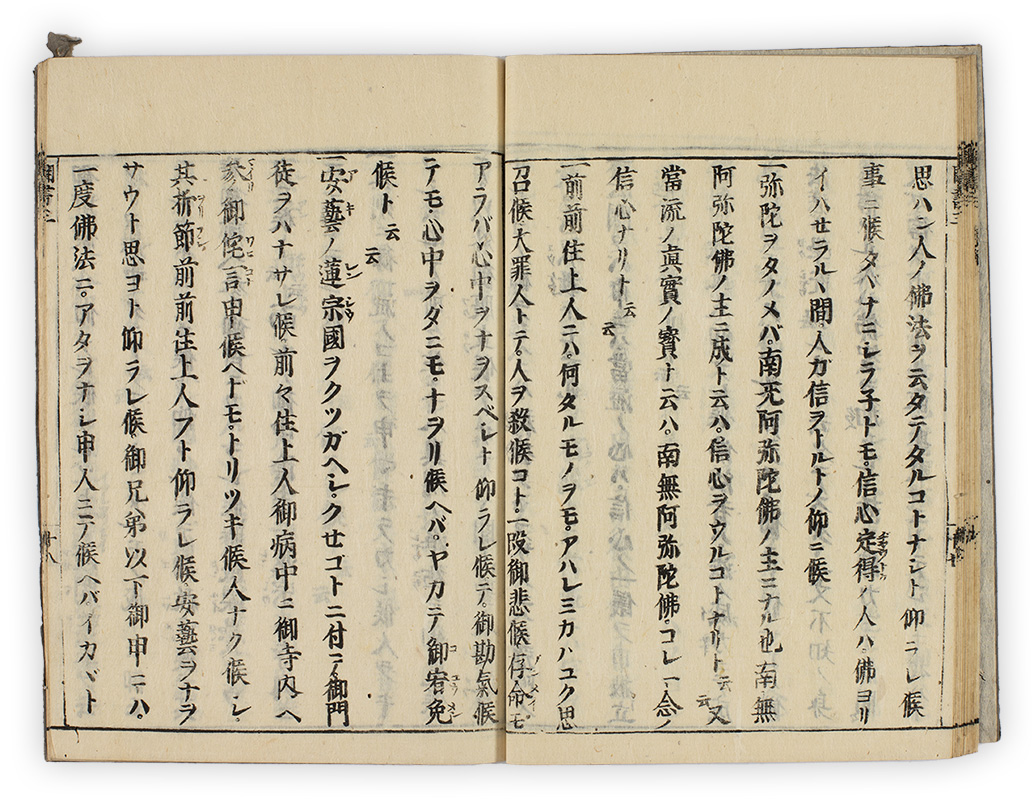 思ハン人ノ佛法ヲ云タテタルコトナシト仰ニラレ候
事ニ候タバナニシラ子トモ。信心定得ノ人ハ佛ヨリ
イハセラルヽ間。人カ信ヲトルトノ仰ニ候
一弥陀ヲタノメバ。南无阿弥陀佛ノ主ニナル也南無
阿弥陀佛ノ主ニ成ト云ハ。信心ヲウルコトナリト云云又
當流ノ真實ノ寳ト云ハ。南無阿弥陀佛。コレ一念ノ
信心ナリト云云
一前前住上人ニハ。何タルモノヲモ。アハレミカハユク思
召候大罪人トテ。人ヲ殺候コト。一段御悲候存命モ
アラバ心中ヲナヲスベシト仰ラレ候テ。御勘氣候
テモ。心中ヲダニモ。ナヲリ候ヘバ。ヤカテ御宥免
候ト云云
一安藝ノ蓮宗國ヲクツガヘシ。クセゴトニ付テ。御門
徒ヲハナサレ候。前々住上人御病中ニ御寺内ヘ
參御侘言申候ヘトモ。トリツキ候人ナク候シ。
其折節前前住上人フト仰ラレ候。安藝ヲナヲ
サウト思ヨト仰ラレ候御兄弟以下御申ニハ。
一度佛法ニ。アタヲナシ申人ニテ候ヘバイカヾト